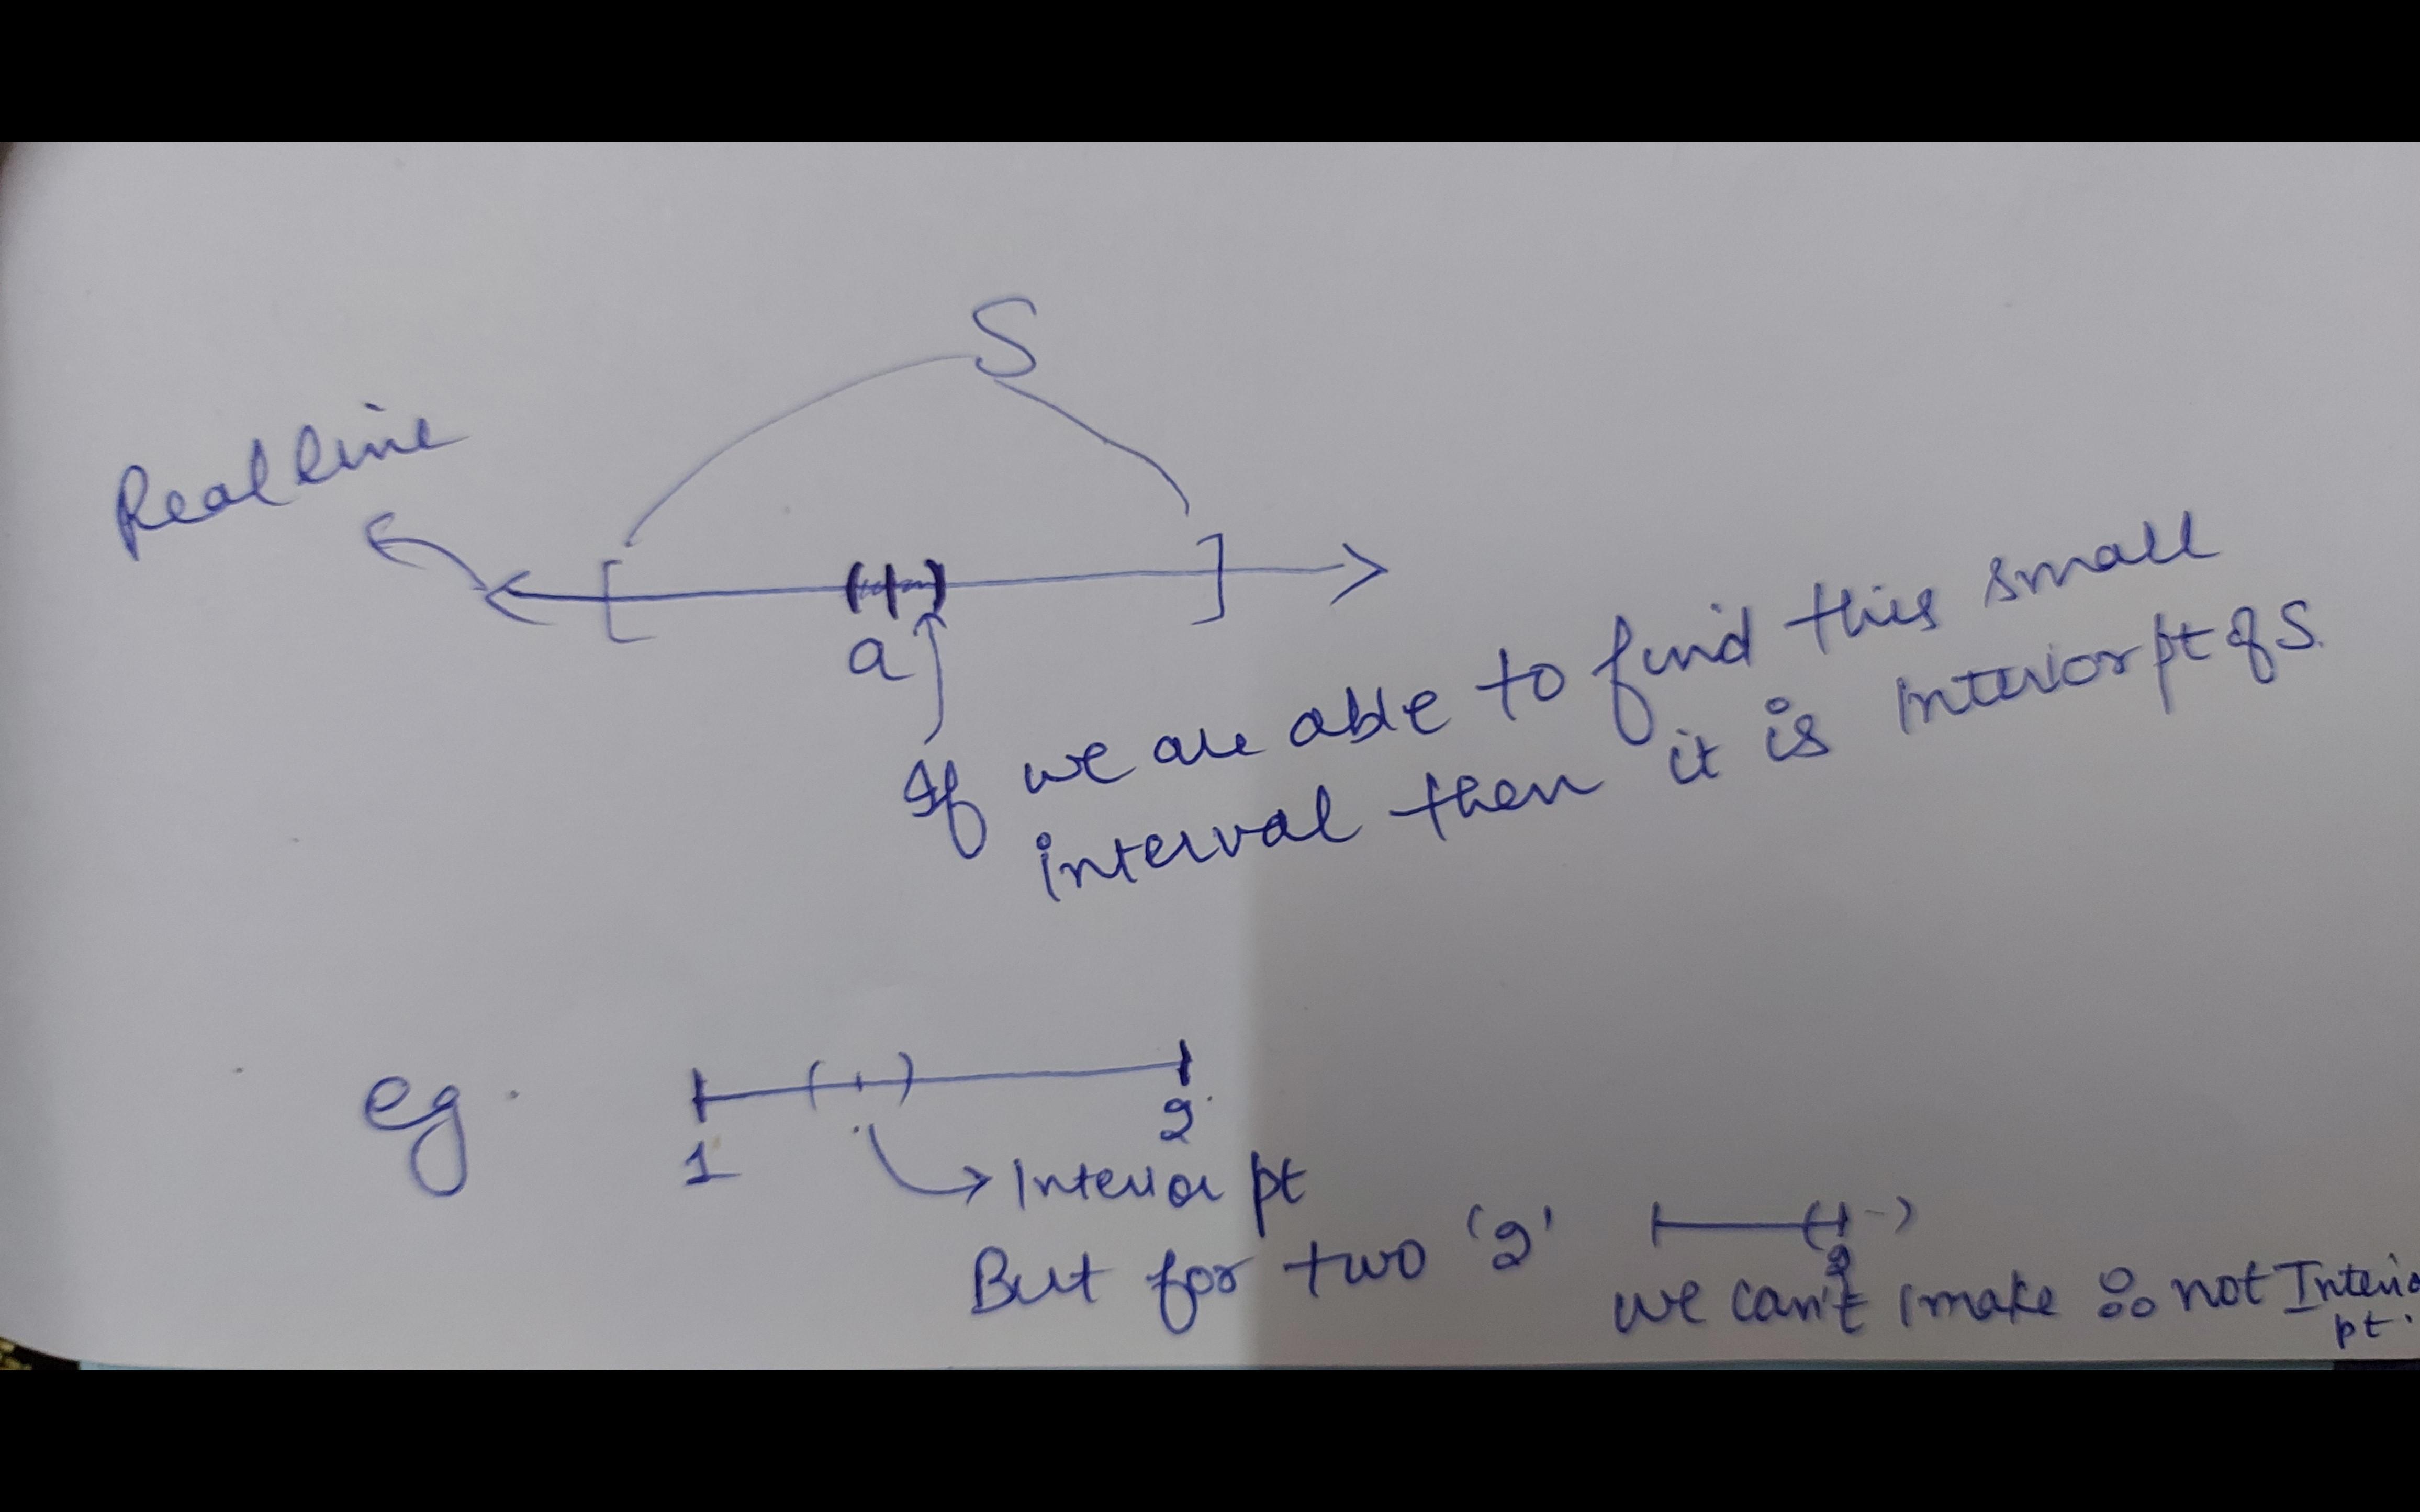 S
Real line
[ ( | ) ]
a
If we are able to find this small
interval then it is interior pt of S.
eg.
1 2
Interior pt
But for two '2'
2
we can't make ∴ not Interio
pt.